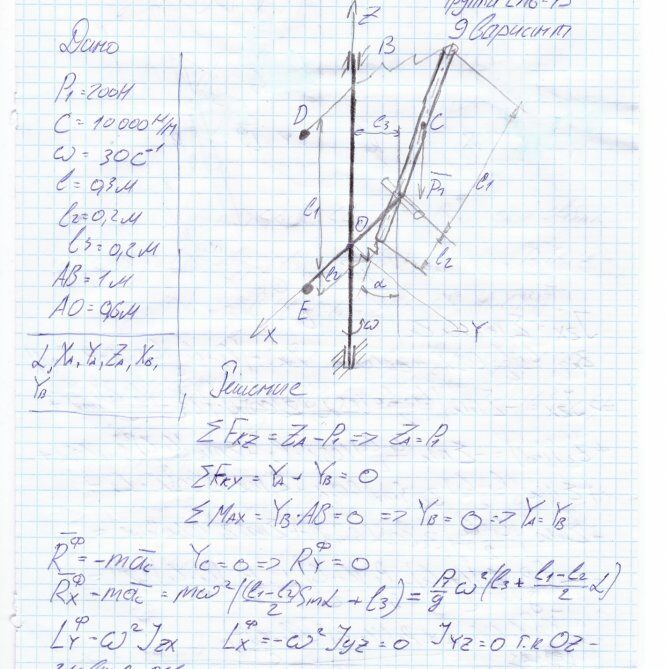 9 Вариант
Дано
P₁ = 200 Н
C = 10000 Н/м
ω = 30 с⁻¹
l₂ = 0,2 м
l₃ = 0,2 м
AB = 1 м
AO = 0,6 м
α, X_A, Y_A, Z_A, X_B,
Y_B
Z
B
D
l₃
C
P̄₁
l₁
l₁
O
l₂
l₂
α
E
ω
X
Y
Решение
ΣF_KZ = Z_A - P₁ => Z_A = P₁
ΣF_KY = Y_A + Y_B = 0
ΣM_AX = Y_B · AB = 0 => Y_B = 0 => Y_A = Y_B
R̄^Ф = -mā_c Y_C = 0 => R_Y^Ф = 0
R̄_X^Ф - mā_c = mω²((l₁-l₂)/2 Sinα + l₃) = P₁/g ω²(l₃ + (l₁-l₂)/2 α)
L_Y^Ф - ω² J_ZX L_X^Ф = -ω² J_YZ = 0 J_YZ = 0 т.к OZ -